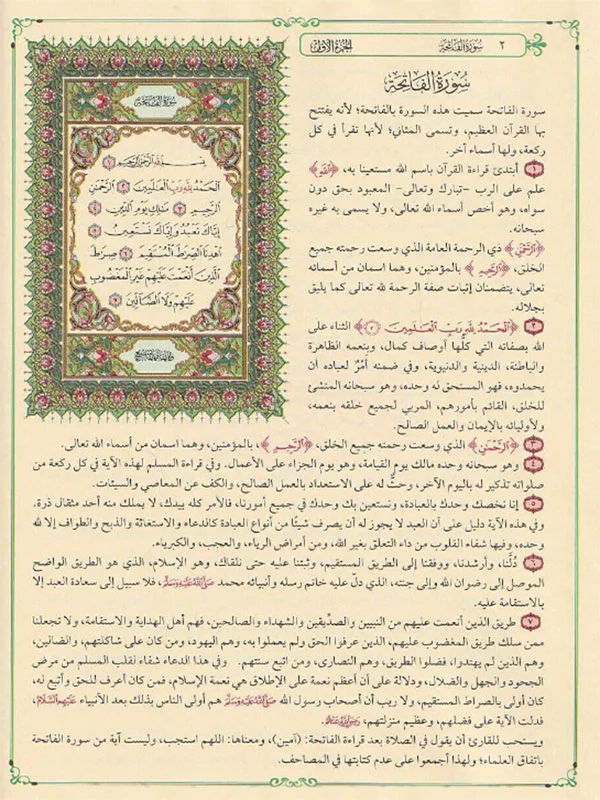 ٢ سورة الفاتحة الجزء الأول
سُورَةُ الفَاتِحَة
سورة الفاتحة سميت هذه السورة بالفاتحة؛ لأنه يفتتح
بها القرآن العظيم، وتسمى المثاني؛ لأنها تقرأ في كل
ركعة، ولها أسماء أخر.
١ أبتدئ قراءة القرآن باسم الله مستعينا به، ﴿اللَّهِ﴾
علم على الرب -تبارك وتعالى- المعبود بحق دون
سواه، وهو أخص أسماء الله تعالى، ولا يسمى به غيره
سبحانه.
﴿الرَّحْمَٰنِ﴾ ذي الرحمة العامة الذي وسعت رحمته جميع
الخلق، ﴿الرَّحِيمِ﴾ بالمؤمنين، وهما اسمان من أسمائه
تعالى، يتضمنان إثبات صفة الرحمة لله تعالى كما يليق
بجلاله.
٢ ﴿الْحَمْدُ لِلَّهِ رَبِّ الْعَالَمِينَ ٢﴾ الثناء على
الله بصفاته التي كلُّها أوصاف كمال، وبنعمه الظاهرة
والباطنة، الدينية والدنيوية، وفي ضمنه أَمْرٌ لعباده أن
يحمدوه، فهو المستحق له وحده، وهو سبحانه المنشئ
للخلق، القائم بأمورهم، المربي لجميع خلقه بنعمه،
ولأوليائه بالإيمان والعمل الصالح.
٣ ﴿الرَّحْمَٰنِ﴾ الذي وسعت رحمته جميع الخلق، ﴿الرَّحِيمِ﴾، بالمؤمنين، وهما اسمان من أسماء الله تعالى.
٤ وهو سبحانه وحده مالك يوم القيامة، وهو يوم الجزاء على الأعمال. وفي قراءة المسلم لهذه الآية في كل ركعة من
صلواته تذكير له باليوم الآخر، وحثٌّ له على الاستعداد بالعمل الصالح، والكف عن المعاصي والسيئات.
٥ إنا نخصك وحدك بالعبادة، ونستعين بك وحدك في جميع أمورنا، فالأمر كله بيدك، لا يملك منه أحد مثقال ذرة.
وفي هذه الآية دليل على أن العبد لا يجوز له أن يصرف شيئًا من أنواع العبادة كالدعاء والاستغاثة والذبح والطواف إلا لله
وحده، وفيها شفاء القلوب من داء التعلق بغير الله، ومن أمراض الرياء، والعجب، والكبرياء.
٦ دُلَّنا، وأرشدنا، ووفقنا إلى الطريق المستقيم، وثبتنا عليه حتى نلقاك، وهو الإسلام، الذي هو الطريق الواضح
الموصل إلى رضوان الله وإلى جنته، الذي دلّ عليه خاتم رسله وأنبيائه محمد صَلَّى اللَّهُ عَلَيْهِ وَسَلَّمَ، فلا سبيل إلى سعادة العبد إلا
بالاستقامة عليه.
٧ طريق الذين أنعمت عليهم من النبيين والصدِّيقين والشهداء والصالحين، فهم أهل الهداية والاستقامة، ولا تجعلنا
ممن سلك طريق المغضوب عليهم، الذين عرفوا الحق ولم يعملوا به، وهم اليهود، ومن كان على شاكلتهم، والضالين،
وهم الذين لم يهتدوا، فضلوا الطريق، وهم النصارى، ومن اتبع سنتهم. وفي هذا الدعاء شفاء لقلب المسلم من مرض
الجحود والجهل والضلال، ودلالة على أن أعظم نعمة على الإطلاق هي نعمة الإسلام، فمن كان أعرف للحق وأتبع له،
كان أولى بالصراط المستقيم، ولا ريب أن أصحاب رسول الله صَلَّى اللَّهُ عَلَيْهِ وَسَلَّمَ هم أولى الناس بذلك بعد الأنبياء عَلَيْهِمُ السَّلَامُ،
فدلت الآية على فضلهم، وعظيم منزلتهم، رَضِيَ اللَّهُ عَنْهُمْ.
ويستحب للقارئ أن يقول في الصلاة بعد قراءة الفاتحة: (آمين)، ومعناها: اللهم استجب، وليست آية من سورة الفاتحة
باتفاق العلماء؛ ولهذا أجمعوا على عدم كتابتها في المصاحف.
سُورَةُ الفَاتِحَةِ
بِسْمِ اللَّهِ الرَّحْمَٰنِ الرَّحِيمِ ١
الْحَمْدُ لِلَّهِ رَبِّ الْعَالَمِينَ ٢ الرَّحْمَٰنِ
الرَّحِيمِ ٣ مَالِكِ يَوْمِ الدِّينِ ٤
إِيَّاكَ نَعْبُدُ وَإِيَّاكَ نَسْتَعِينُ ٥
اهْدِنَا الصِّرَاطَ الْمُسْتَقِيمَ ٦ صِرَاطَ
الَّذِينَ أَنْعَمْتَ عَلَيْهِمْ غَيْرِ الْمَغْضُوبِ
عَلَيْهِمْ وَلَا الضَّالِّينَ ٧